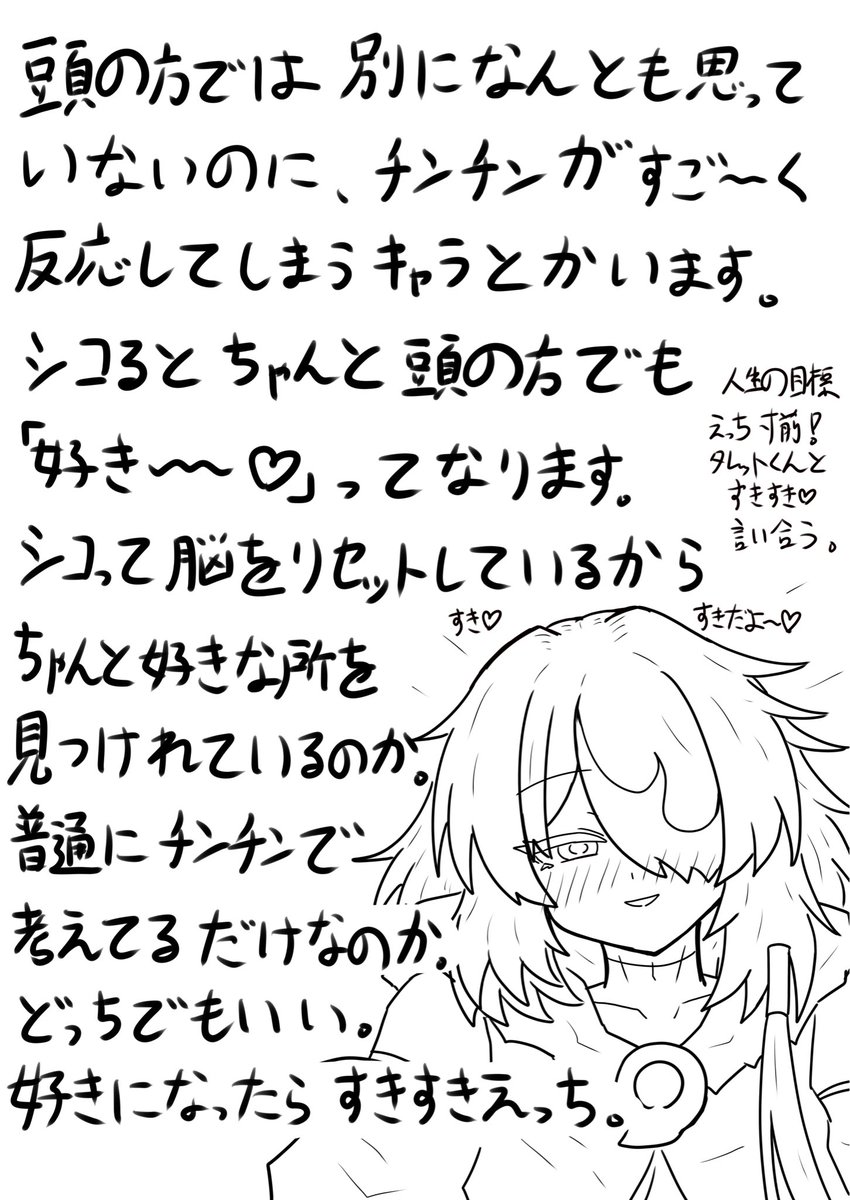 頭の方では 別になんとも思って
いないのに、チンチンがすご〜く
反応してしまうキャラとかいます。
シコるとちゃんと頭の方でも
「好き〜〜♡」ってなります。
シコって脳をリセットしているから
ちゃんと好きな所を
見つけれているのか。
普通にチンチンで
考えてるだけなのか。
どっちでもいい。
好きになったらすきすきえっち。
人生の目標
えっち寸前!
タレットくんと
すきすき♡
言い合う。
すき♡
すきだよ〜♡